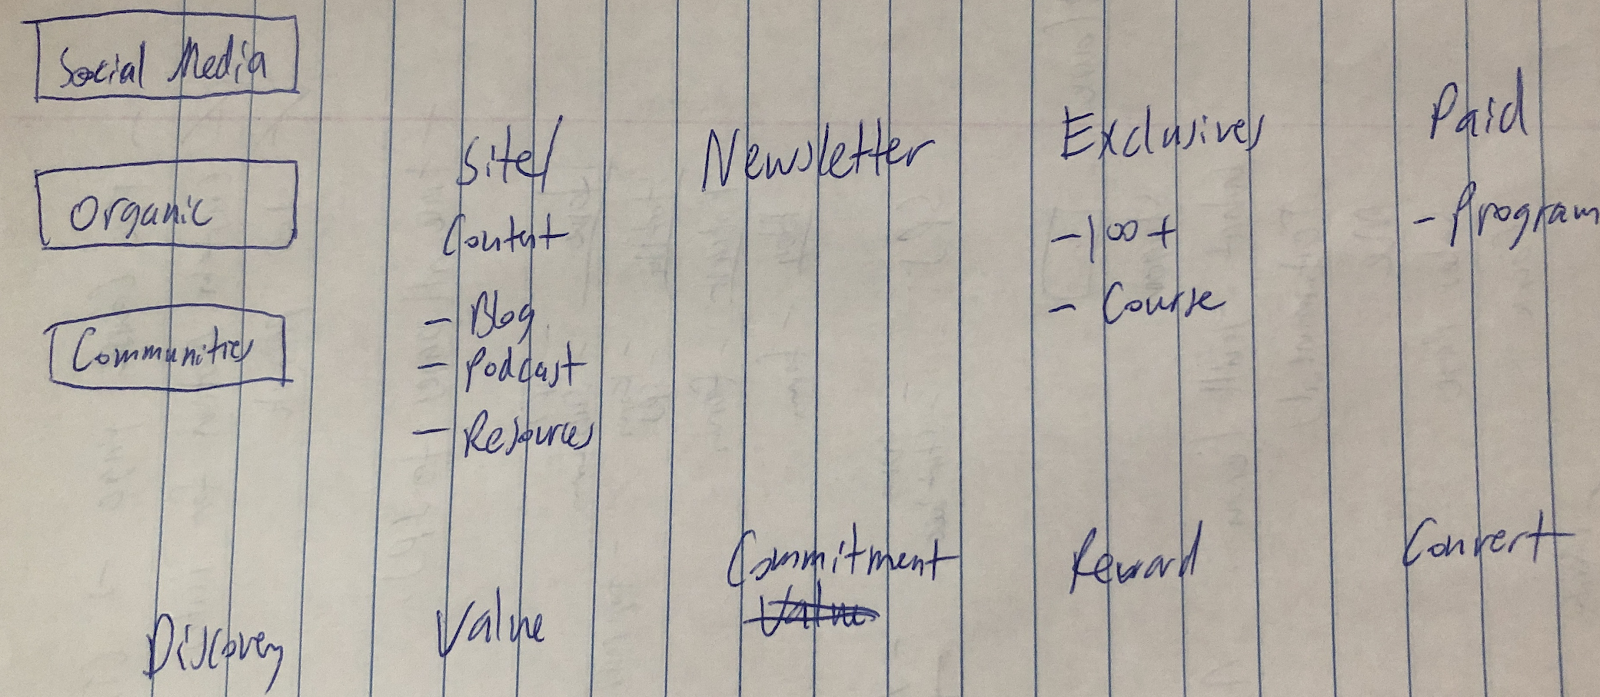 Social Media
Organic
Communities
Site/
Content
- Blog
- Podcast
- Resources
Newsletter
Exclusives
- 100+
- Course
Paid
- Program
Discovery
Value
Commitment
Value
Reward
Convert